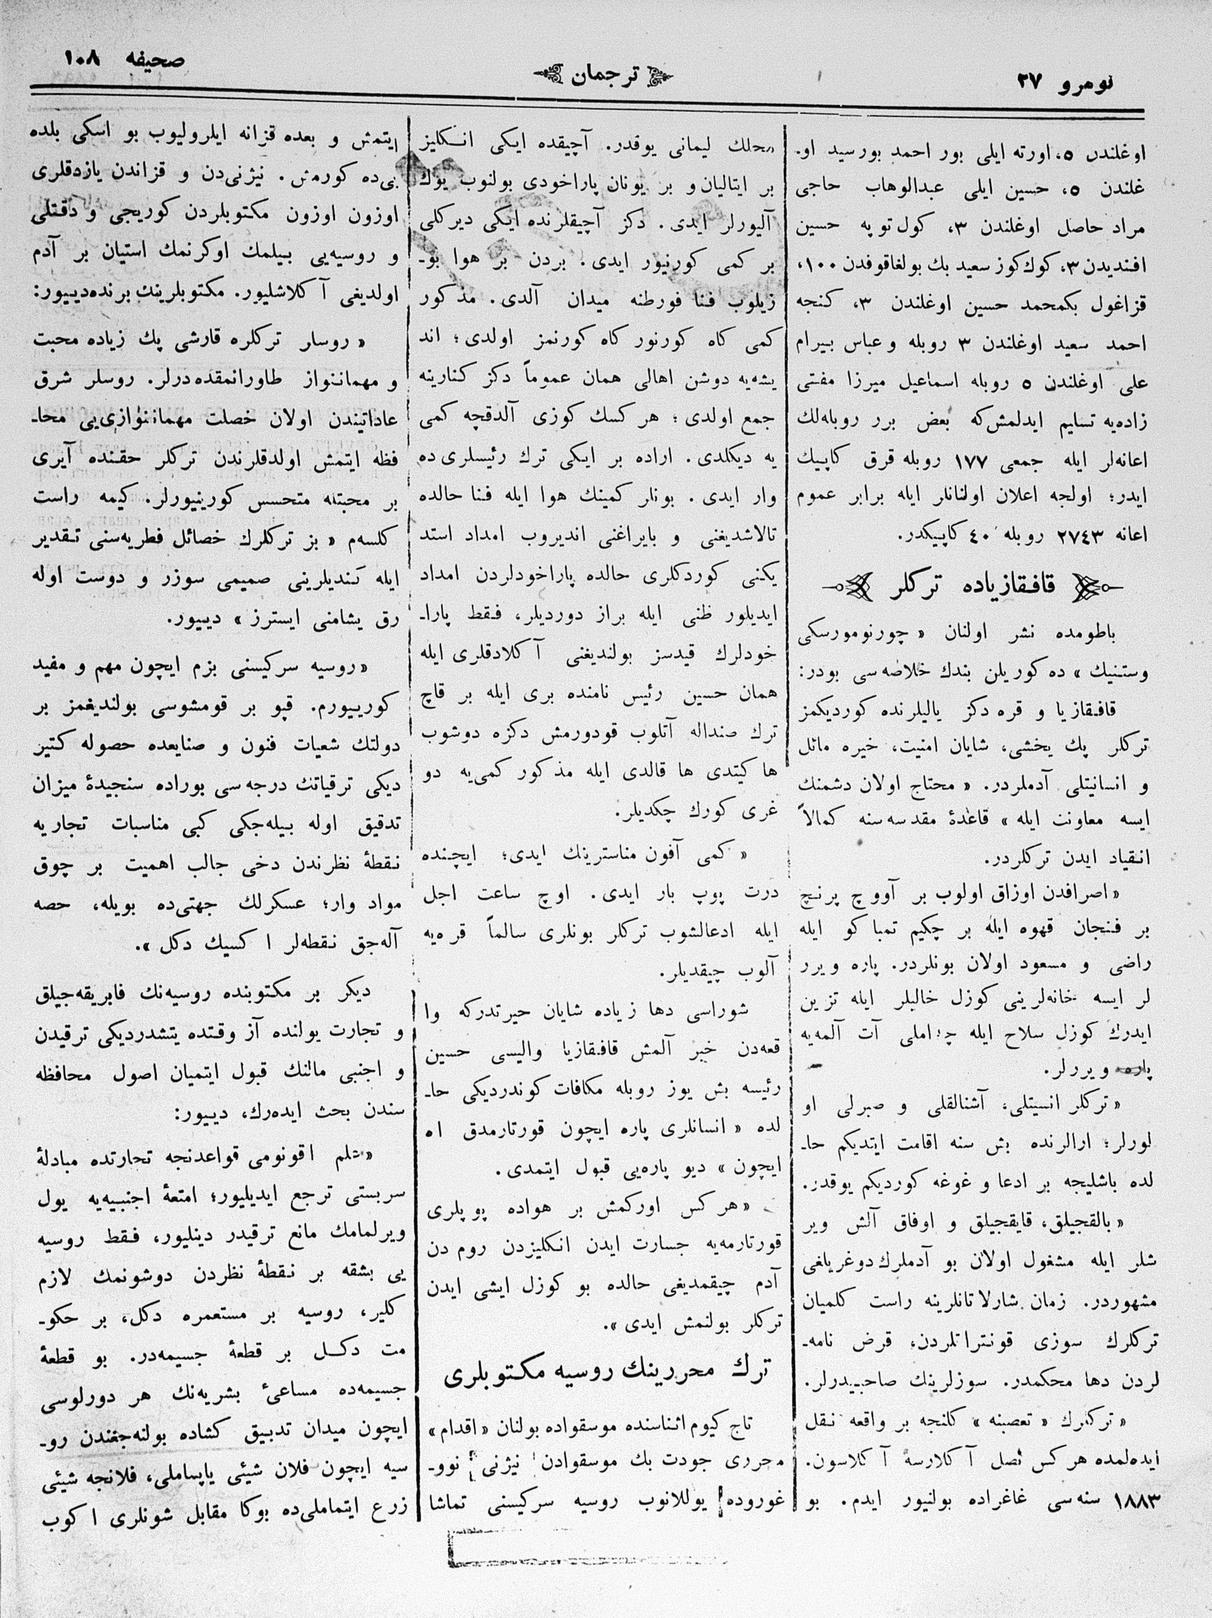 نومرو ٢٧
ترجمان
صحيفه ١٠٨
اوغلندن ٥، اورته ايلى بور احمد بورسيد او-
غلندن ٥، حسين ايلى عبدالوهاب حاجى
مراد حاصل اوغلندن ٣، كول توپه حسين
افنديدن ٣، كوك كوز سعيد بك بولغاقوفدن ١٠٠،
قزاغول بكمحمد حسين اوغلندن ٣، كنجه
احمد سعيد اوغلندن ٣ روبله و عباس بيرام
على اوغلندن ٥ روبله اسماعيل ميرزا مفتى
زاده‌يه تسليم ايدلمش‌كه بعض برر روبله‌لك
اعانه‌لر ايله جمعى ١٧٧ روبله قرق كاپيك
ايدر؛ اولجه اعلان اولنانلر ايله برابر عموم
اعانه ٢٧٤٣ روبله ٤٠ كاپيكدر.
قافقازياده تركلر
باطومده نشر اولنان « چورنومورسكى
وستنيك » ده كوريلن بندك خلاصه‌سى بودر:
قافقازيا و قره دكز ياليلرنده كورديكمز
تركلر پك يخشى، شايان امنيت، خيره مائل
و انسانيتلى آدملردر. « محتاج اولان دشمنك
ايسه معاونت ايله » قاعدهٔ مقدسه‌سنه كمالاً
انقياد ايدن تركلردر.
« اصرافدن اوزاق اولوب بر آووچ پرنچ
بر فنجان قهوه ايله بر چكيم تمباكو ايله
راضى و مسعود اولان بونلردر. پاره ويرر
لر ايسه خانه‌لرينى كوزل خاليلر ايله تزين
ايدرك كوزل سلاح ايله آت آلمه‌يه
پاره ويررلر.
« تركلر انسيتلى، آشنالقلى و صبرلى او
لورلر؛ ارالرنده بش سنه اقامت ايتديكم حا-
لده باشليجه بر ادعا و غوغه كورديكم يوقدر.
« بالقجيلق، قايقجيلق و اوفاق آلش وير
شلر ايله مشغول اولان بو آدملرك دوغريلغى
مشهوردر. زمان شارلاتانلرينه راست كلميان
تركلرك سوزى قونتراتلردن، قرض نامه-
لردن دها محكمدر. سوزلرينك صاحبيدرلر.
« تركلرك « تعصبنه » كلنجه بر واقعه نقل
ايده‌لمده هركس نصل آكلارسه آكلاسون.
١٨٨٣ سنه‌سى غاغراده بولنيور ايدم. بو
محلك ليمانى يوقدر. آچيقده ايكى انكليز
بر ايتاليان و بر يونان پاراخودى بولنوب يوك
آليورلر ايدى. دكز آچيقلرنده ايكى ديركلى
بر كمى كورنيور ايدى. بردن بر هوا بو-
زيلوب فنا فورطنه ميدان آلدى. مذكور
كمى كاه كورنور كاه كورنمز اولدى؛ اند
يشه‌يه دوشن اهالى همان عموماً دكز كنارينه
جمع اولدى؛ هركسك كوزى آلدقچه كمى
يه ديكلدى. اراده بر ايكى ترك رئيسلرى ده
وار ايدى. بونلر كمينك هوا ايله فنا حالده
تالاشديغنى و بايراغنى انديروب امداد استد
يكنى كوردكلرى حالده پاراخودلردن امداد
ايديلور ظنى ايله براز دورديلر، فقط پارا-
خودلرك قيدسز بولنديغنى آكلادقلرى ايله
همان حسين رئيس نامنده برى ايله بر قاچ
ترك صنداله آتلوب قودورمش دكزه دوشوب
ها كيتدى ها قالدى ايله مذكور كمى‌يه دو
غرى كورك چكديلر.
« كمى آفون مناسترينك ايدى؛ ايچنده
درت پوپ بار ايدى. اوچ ساعت اجل
ايله ادعالشوب تركلر بونلرى سالماً قره‌يه
آلوب چيقديلر.
شوراسى دها زياده شايان حيرتدركه وا
قعه‌دن خبر آلمش قافقازيا واليسى حسين
رئيسه بش يوز روبله مكافات كوندرديكى حا-
لده « انسانلرى پاره ايچون قورتارمدق اﷲ
ايچون » ديو پاره‌يى قبول ايتمدى.
« هركس اوركمش بر هواده پوپلرى
قورتارمه‌يه جسارت ايدن انكليزدن روم دن
آدم چيقمديغى حالده بو كوزل ايشى ايدن
تركلر بولنمش ايدى ».
ترك محررينك روسيه مكتوبلرى
تاج كيوم اثناسنده موسقواده بولنان « اقدام »
محررى جودت بك موسقوادن نيژنى نوو-
غوروده يوللانوب روسيه سركيسنى تماشا
ايتمش و بعده قزانه ايلروليوب بو اسكى بلده
يى‌ده كورمش. نيژنى‌دن و قزاندن يازدقلرى
اوزون اوزون مكتوبلردن كوريجى و دقتلى
و روسيه‌يى بيلمك اوكرنمك استيان بر آدم
اولديغى آكلاشليور. مكتوبلرينك برنده‌دييور:
« روسلر تركلره قارشى پك زياده محبت
و مهماننواز طاورانمقده‌درلر. روسلر شرق
عاداتيندن اولان خصلت مهماننوازى‌يى محا-
فظه ايتمش اولدقلرندن تركلر حقنده آيرى
بر محبتله متحسس كورينيورلر. كيمه راست
كلسه‌م « بز تركلرك خصائل فطريه‌سنى تقدير
ايله كنديلرينى صميمى سوزر و دوست اوله
رق يشامنى ايسترز » دييور.
« روسيه سركيسنى بزم ايچون مهم و مفيد
كورييورم. قپو بر قومشوسى بولنديغمز بر
دولتك شعبات فنون و صنايعده حصوله كتير
ديكى ترقياتك درجه‌سى بوراده سنجيدهٔ ميزان
تدقيق اوله بيله‌جكى كبى مناسبات تجاريه
نقطهٔ نظرندن دخى جالب اهميت بر چوق
مواد وار؛ عسكرلك جهتى‌ده بويله، حصه
آله‌جق نقطه‌لر اكسيك دكل ».
ديكر بر مكتوبنده روسيه‌نك فابريقه‌جيلق
و تجارت يولنده آز وقتده يتشدرديكى ترقيدن
و اجنبى مالنك قبول ايتميان اصول محافظه
سندن بحث ايده‌رك، دييور:
« علم اقونومى قواعدنجه تجارتده مبادلهٔ
سربستى ترجع ايديليور؛ امتعهٔ اجنبيه‌يه يول
ويرلمامك مانع ترقيدر دينليور، فقط روسيه
يى بشقه بر نقطهٔ نظردن دوشونمك لازم
كلير، روسيه بر مستعمره دكل، بر حكو-
مت دكل بر قطعهٔ جسيمه‌در. بو قطعهٔ
جسيمه‌ده مساعئ بشريه‌نك هر دورلوسى
ايچون ميدان تدبيق كشاده بولنه‌جغندن رو-
سيه ايچون فلان شيئى ياپساملى، فلانجه شيئى
زرع ايتماملى‌ده بوكا مقابل شونلرى اكوب